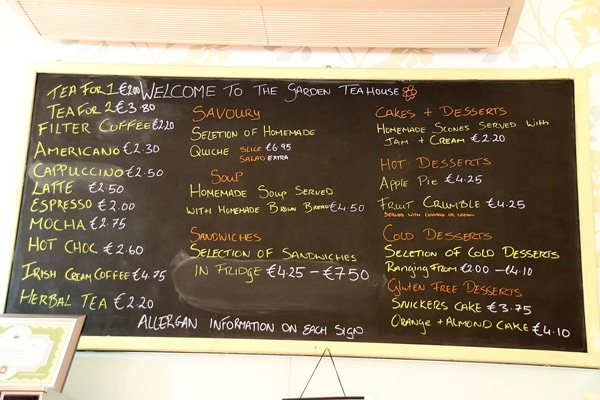 WELCOME TO THE GARDEN TEAHOUSE
TEA FOR 1 €2.00
TEA FOR 2 €3.80
FILTER COFFEE €2.20
AMERICANO €2.30
CAPPUCCINO €2.50
LATTE €2.50
ESPRESSO €2.00
MOCHA €2.75
HOT CHOC €2.60
IRISH CREAM COFFEE €4.75
HERBAL TEA €2.20
SAVOURY
SELETION OF HOMEMADE
QUICHE SLICE €6.95
SALAD EXTRA
SOUP
HOMEMADE SOUP SERVED
WITH HOMEMADE BROWN BREAD €4.50
SANDWICHES
SELECTION OF SANDWICHES
IN FRIDGE €4.25 - €7.50
CAKES + DESSERTS
HOMEMADE SCONES SERVED WITH
JAM + CREAM €2.20
HOT DESSERTS
APPLE PIE €4.25
FRUIT CRUMBLE €4.25
SERVED WITH CUSTARD OR CREAM
COLD DESSERTS
SELETION OF COLD DESSERTS
RANGING FROM €2.00 - €4.10
GLUTEN FREE DESSERTS
SNICKERS CAKE €3.75
ORANGE + ALMOND CAKE €4.10
ALLERGAN INFORMATION ON EACH SIGN